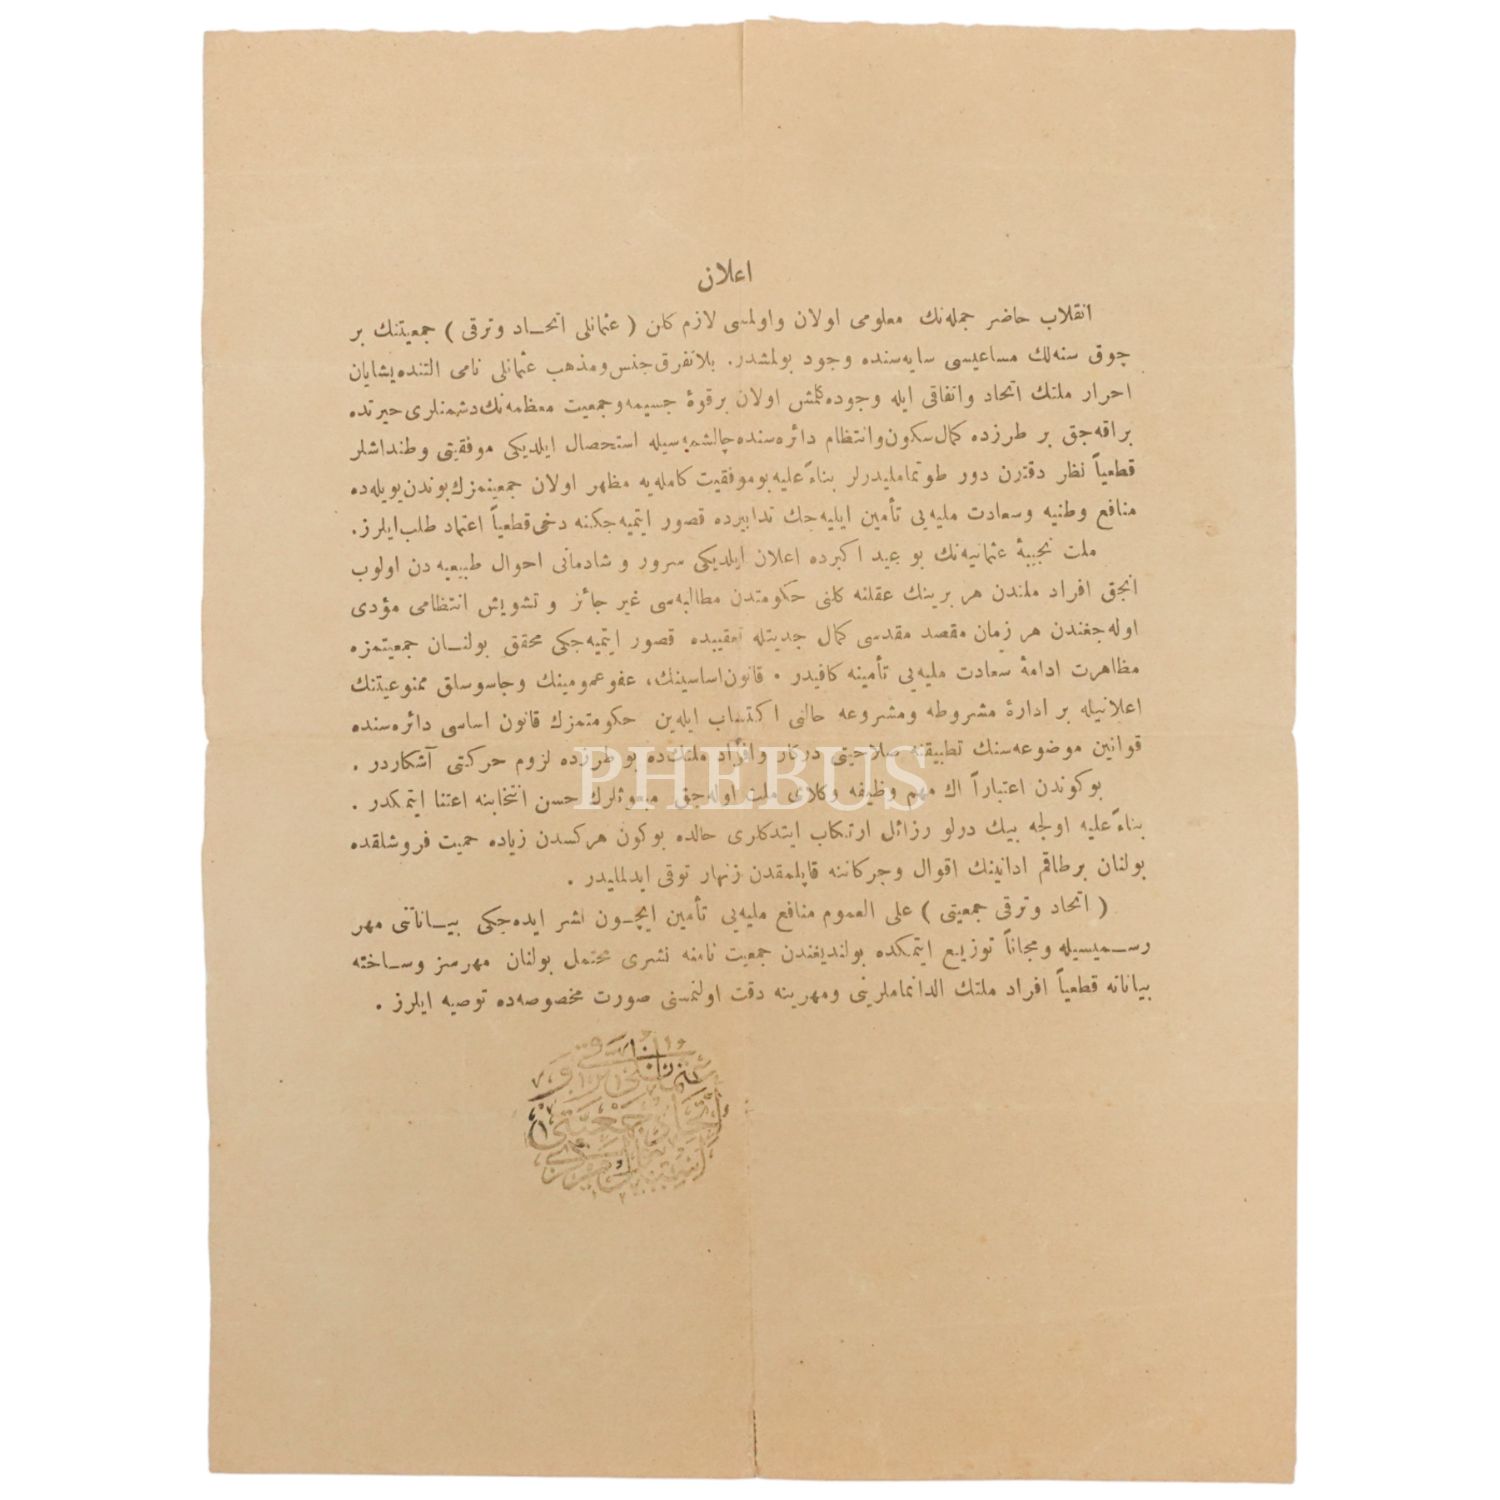 اعلان
انقلاب حاضر جمله‌نك معلومی اولان واولمسی لازم كلن ( عثمانلی اتحـاد وترقی ) جمعیتنك بر
چوق سنه‌لك مساعیسی سایه‌سنده وجود بولمشدر. بلاتفرق جنس ومذهب عثمانلی نامی التنده یشایان
احرار ملتك اتحاد واتفاقی ایله وجوده كلمش اولان برقوهٔ جسیمه وجمعیت معظمه‌نك دشمنلری حیرتده
براقه‌جق بر طرزده كمال سكون وانتظام دائره‌سنده چالشمه‌سیله استحصال ایلدیكی موفقیتی وطنداشلر
قطعیاً نظر دقتدن دور طوتماملیدرلر بناءً علیه بو موفقیت كامله‌یه مظهر اولان جمعیتمزك بوندن بویله‌ده
منافع وطنیه وسعادت ملیه‌یی تأمین ایلیه‌جك تدابیرده قصور ایتمیه‌جكنه دخی قطعیاً اعتماد طلب ایلرز.
ملت نجیبهٔ عثمانیه‌نك بو عید اكبرده اعلان ایلدیكی سرور و شادمانی احوال طبیعیه دن اولوب
انجق افراد ملتدن هر برینك عقلنه كلنی حكومتدن مطالبه‌سی غیر جائز و تشویش انتظامی مؤدی
اوله‌جغندن هر زمان مقصد مقدسی كمال جدیتله تعقیبده قصور ایتمیه‌جكی محقق بولنـان جمعیتمزه
مظاهرت ادامهٔ سعادت ملیه‌یی تأمینه كافیدر . قانون اساسینك، عفو عمومینك وجاسوسلق ممنوعیتنك
اعلانیله بر ادارهٔ مشروطه ومشروعه حالنی اكتساب ایله‌ین حكومتمزك قانون اساسی دائره‌سنده
قوانین موضوعه‌سنك تطبیقنه صلاحیتی دركار وافراد ملتك‌ده بو طرزده لزوم حركتی آشكاردر .
بوكوندن اعتباراً اك مهم وظیفه وكلای ملت اوله‌جق مبعوثلرك حسن انتخابنه اعتنا ایتمكدر .
بناءً علیه اولجه بیك درلو رزائل ارتكاب ایتدكلری حالده بوكون هركسدن زیاده حمیت فروشلقده
بولنان برطاقم ادانینك اقوال وحركاتنه قاپلمقدن زنهار توقی ایدلملیدر .
( اتحاد وترقی جمعیتی ) علی العموم منافع ملیه‌یی تأمین ایچـون نشر ایده‌جكی بیـاناتنی مهر
رسـمیسیله ومجاناً توزیع ایتمكده بولندیغندن جمعیت نامنه نشری محتمل بولنان مهرسز وسـاخته
بیاناته قطعیاً افراد ملتك الدانماملرینی ومهرینه دقت اولنمسنی صورت مخصوصه‌ده توصیه ایلرز .
عثمانلی
ترقی و
اتحاد جمعیتی
PHEBUS